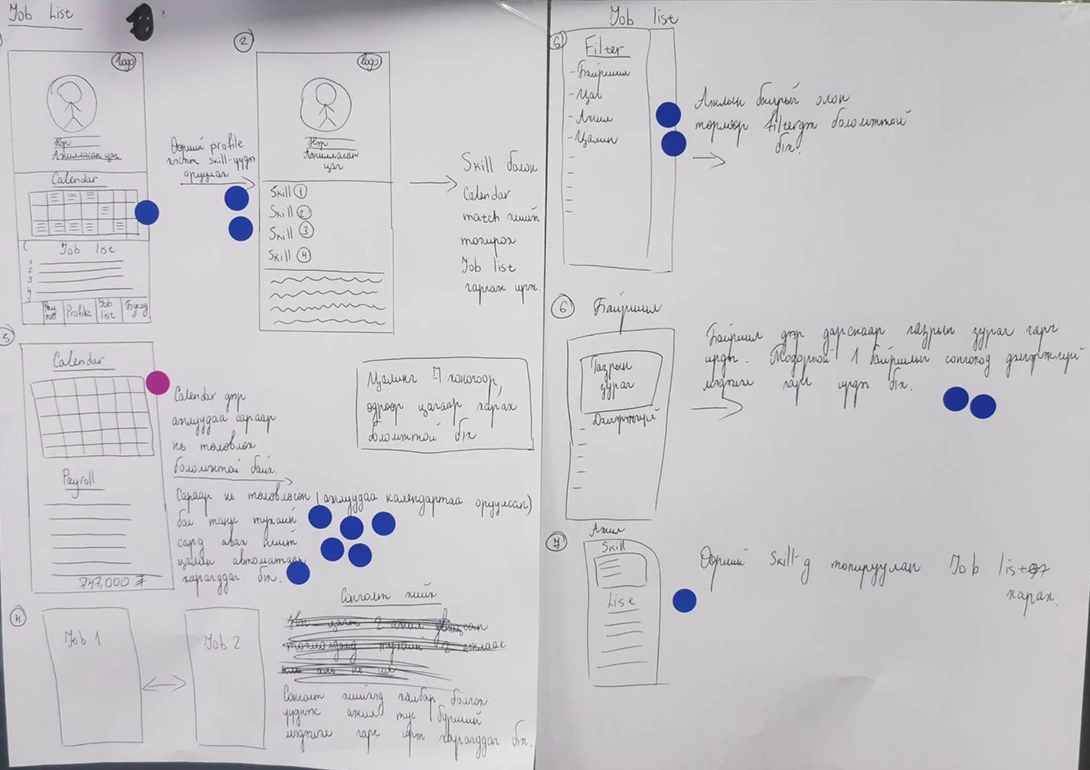 Job List
1
2
logo
Нэр
Ажилласан цаг
Calendar
Job list
1
2
3
4
5
Pay roll
Profile
Job list
Бусад
Өөрийн profile
хэсэгт skill-үүдээ
оруулах
logo
Нэр
Ажилласан
цаг
Skill 1
Skill 2
Skill 3
Skill 4
Skill болон
Calendar
match хийж
тохирох
Job list
гарах ирж.
3
Calendar
Payroll
747,000 ₮
Calendar дээр
ажлуудаа сараар
нь төлөвлөх
боломжтой байх.
Сараар нь төлөвлөсөн (ажлуудаа календартаа оруулсан)
бол таны тухайн
сард авах нийт
цалин автоматаар
харагддаг бх.
Цалинг 7 хоногоор,
өдрөөр цагаар харах
боломжтой бх
4
Job 1
Job 2
Сонголт хийх
Сонголт хийхэд хялбар болгох
үүднээс ажил тус бүрийн
мэдээлэл гарч ирж харагддаг бх.
Job list
Filter
-Байршил
-Цаг
-Ажил
-Цалин
Ажлын байрыг олон
төрлөөр filterдэх боломжтой
бх.
6
Байршил
Газрын
зураг
Дэлгэрэнгүй
Байршил дээр дарснаар газрын зураг гарч
ирдэг. Тодорхой 1 байршлыг сонгоход дэлгэрэнгүй
мэдээлэл гарч ирдэг бх.
7
Ажил
Skill
List
Өөрийн Skillд тохируулан Job list
харах.